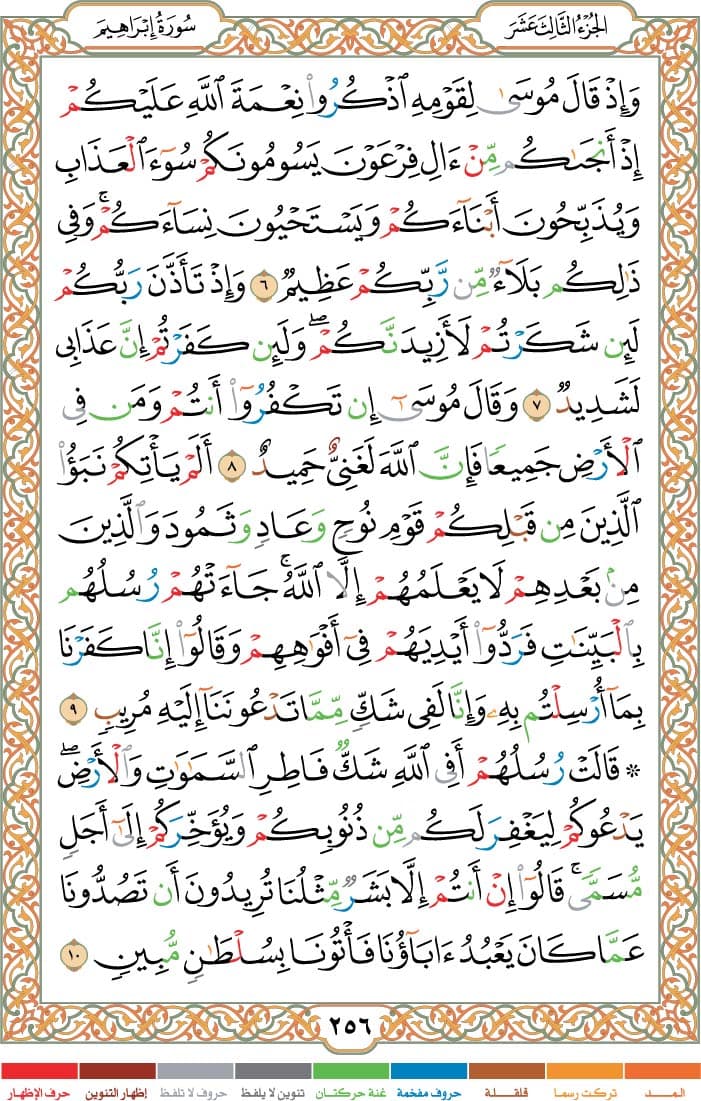 الجُزْءُ الثَّالِثَ عَشَرَ
سُورَةُ إِبْرَاهِيمَ
وَإِذْ قَالَ مُوسَىٰ لِقَوْمِهِ ٱذْكُرُوا۟ نِعْمَةَ ٱللَّهِ عَلَيْكُمْ
إِذْ أَنجَىٰكُم مِّنْ ءَالِ فِرْعَوْنَ يَسُومُونَكُمْ سُوٓءَ ٱلْعَذَابِ
وَيُذَبِّحُونَ أَبْنَآءَكُمْ وَيَسْتَحْيُونَ نِسَآءَكُمْ ۚ وَفِى
ذَٰلِكُم بَلَآءٌ مِّن رَّبِّكُمْ عَظِيمٌ ٦ وَإِذْ تَأَذَّنَ رَبُّكُمْ
لَئِن شَكَرْتُمْ لَأَزِيدَنَّكُمْ ۖ وَلَئِن كَفَرْتُمْ إِنَّ عَذَابِى
لَشَدِيدٌ ٧ وَقَالَ مُوسَىٰٓ إِن تَكْفُرُوٓا۟ أَنتُمْ وَمَن فِى
ٱلْأَرْضِ جَمِيعًا فَإِنَّ ٱللَّهَ لَغَنِىٌّ حَمِيدٌ ٨ أَلَمْ يَأْتِكُمْ نَبَؤُا۟
ٱلَّذِينَ مِن قَبْلِكُمْ قَوْمِ نُوحٍ وَعَادٍ وَثَمُودَ وَٱلَّذِينَ
مِنۢ بَعْدِهِمْ لَا يَعْلَمُهُمْ إِلَّا ٱللَّهُ ۚ جَآءَتْهُمْ رُسُلُهُم
بِٱلْبَيِّنَٰتِ فَرَدُّوٓا۟ أَيْدِيَهُمْ فِىٓ أَفْوَٰهِهِمْ وَقَالُوٓا۟ إِنَّا كَفَرْنَا
بِمَآ أُرْسِلْتُم بِهِۦ وَإِنَّا لَفِى شَكٍّ مِّمَّا تَدْعُونَنَآ إِلَيْهِ مُرِيبٍ ٩
۞ قَالَتْ رُسُلُهُمْ أَفِى ٱللَّهِ شَكٌّ فَاطِرِ ٱلسَّمَٰوَٰتِ وَٱلْأَرْضِ ۖ
يَدْعُوكُمْ لِيَغْفِرَ لَكُم مِّن ذُنُوبِكُمْ وَيُؤَخِّرَكُمْ إِلَىٰٓ أَجَلٍ
مُّسَمًّى ۚ قَالُوٓا۟ إِنْ أَنتُمْ إِلَّا بَشَرٌ مِّثْلُنَا تُرِيدُونَ أَن تَصُدُّونَا
عَمَّا كَانَ يَعْبُدُ ءَابَآؤُنَا فَأْتُونَا بِسُلْطَٰنٍ مُّبِينٍ ١٠
٢٥٦
المــــد تركت رسما قلقـــلة حروف مفخمة غنة حركتان تنوين لا يلفظ حروف لا تلفظ إظهار التنوين حرف الإظهار